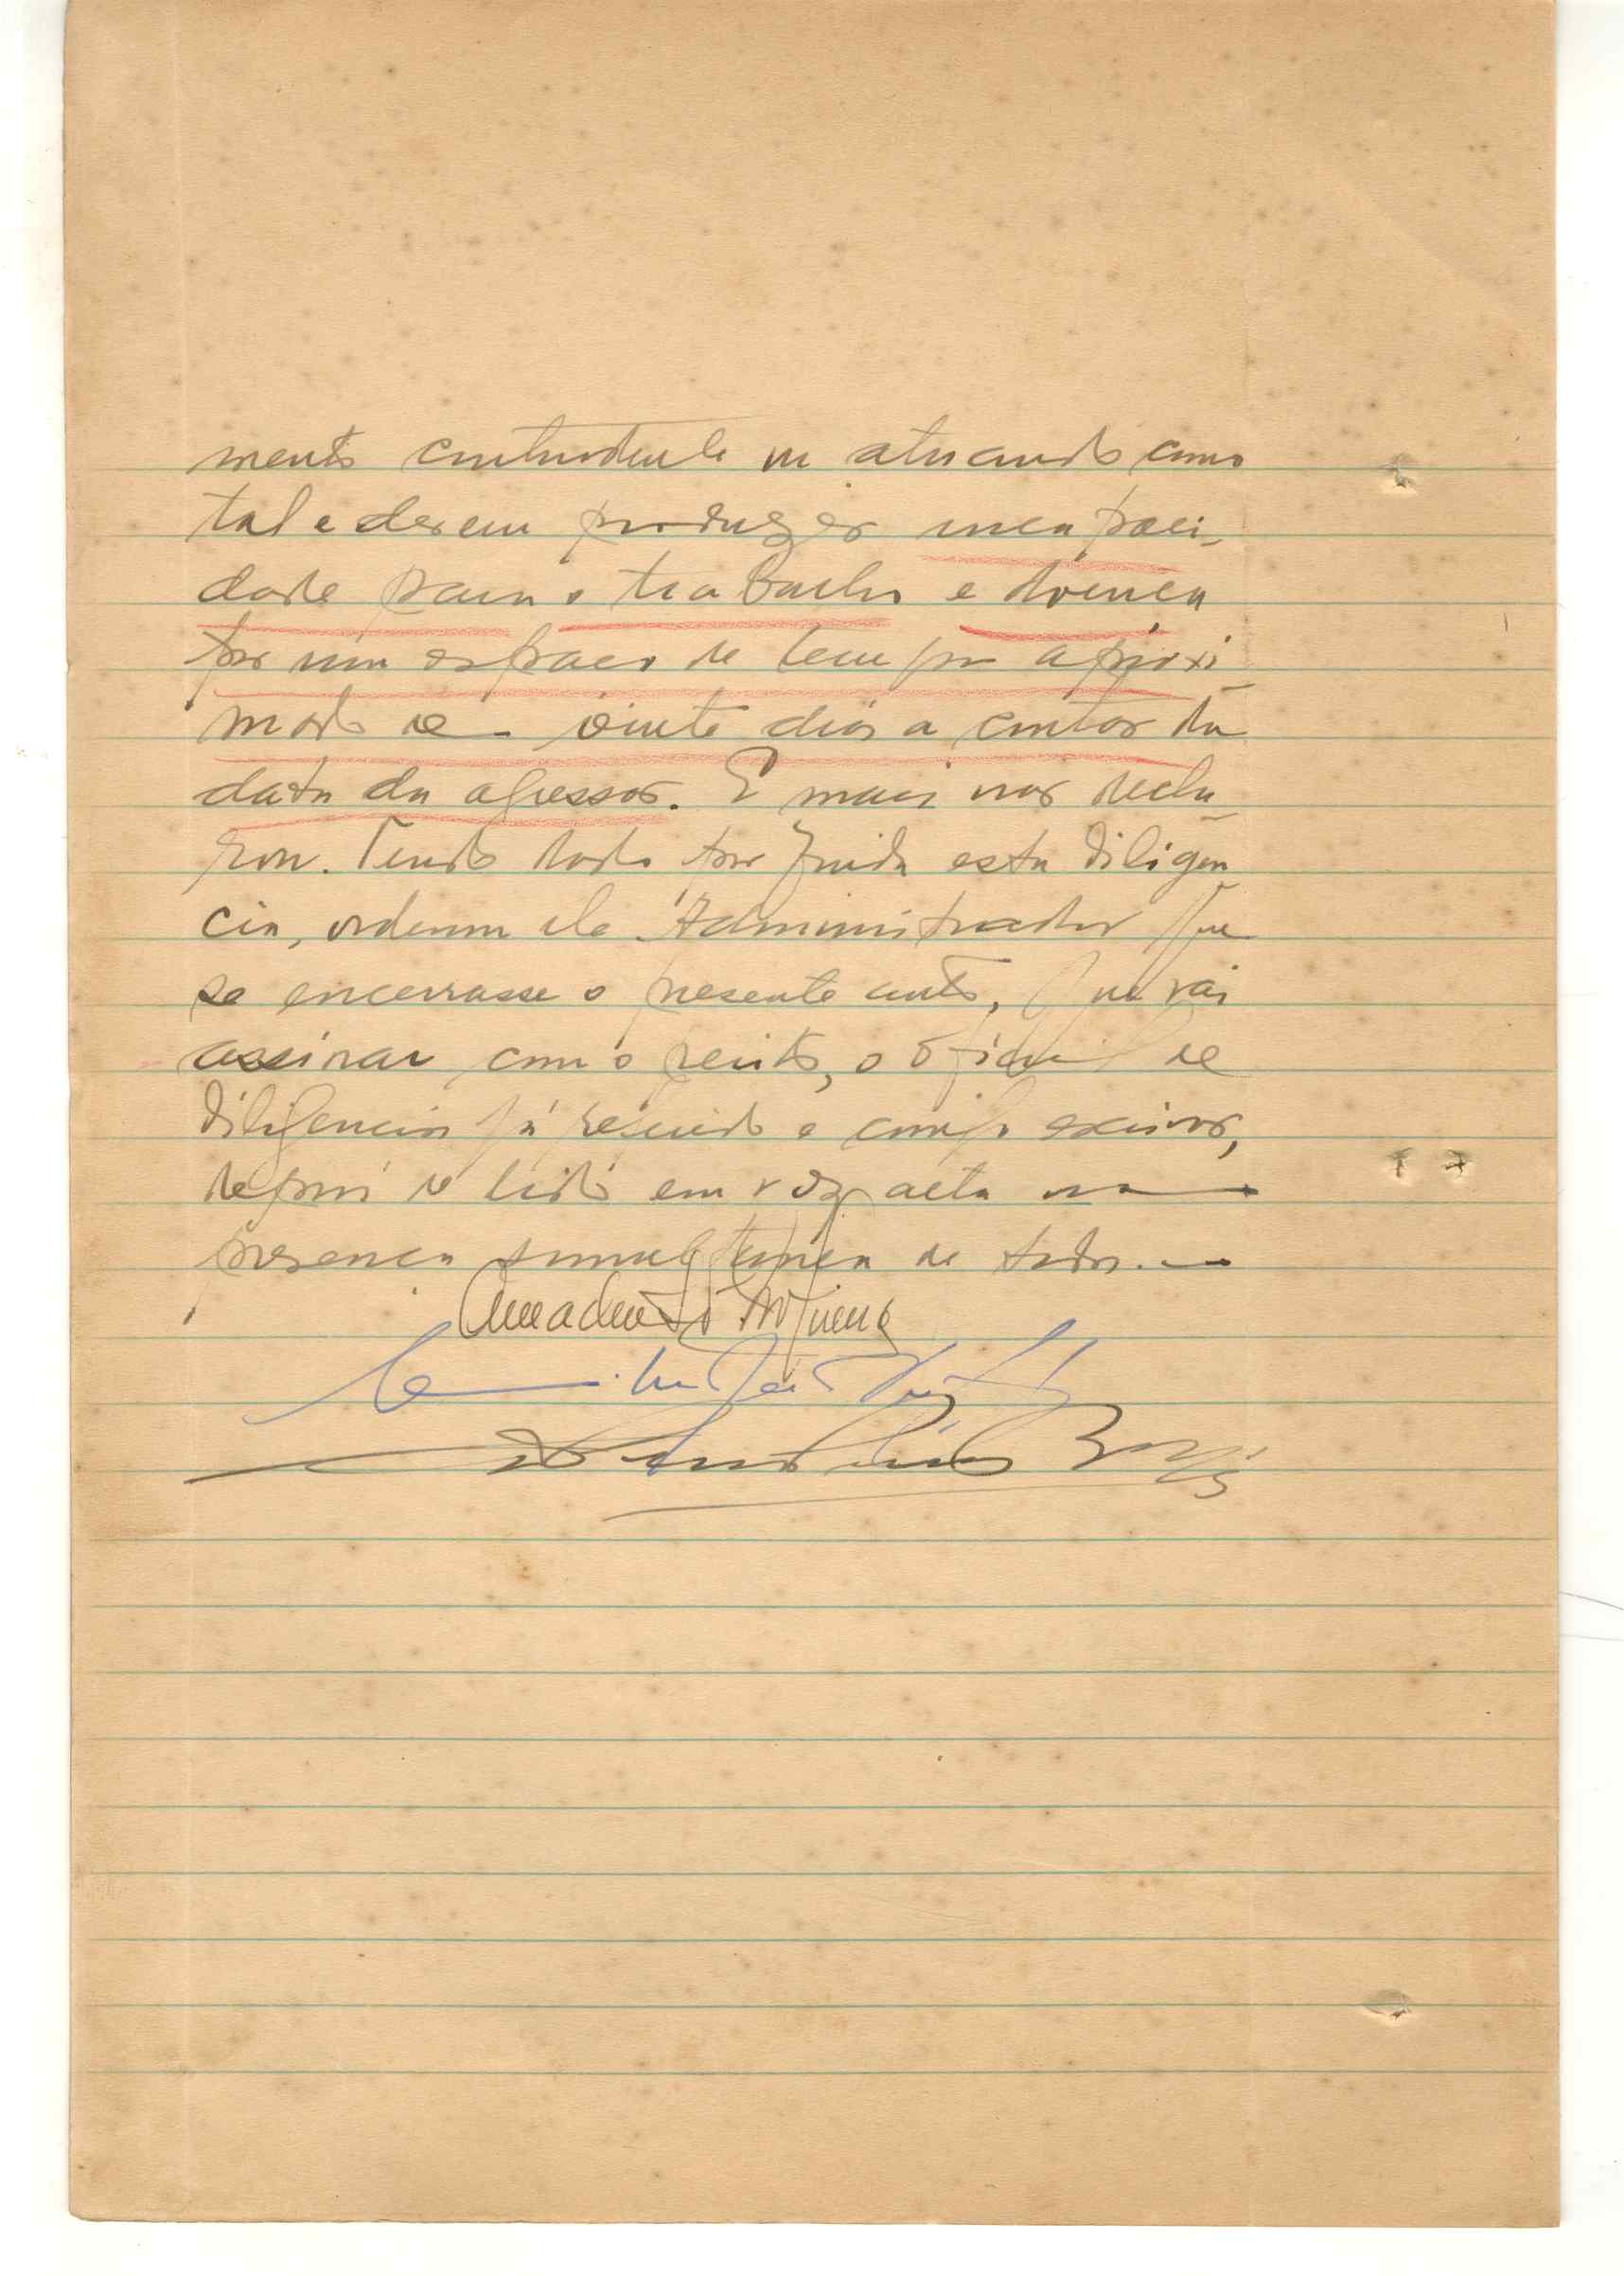 mento contundente ou atuando como
tal e devem produzir incapaci-
dade para o trabalho e doença
por um espaço de tempo aproxi-
mado de - vinte dias a contar da
data da agressão. E mais não decla-
rou. Tendo dado por finda esta diligen
cia, ordenou ele Administrador que
se encerrasse o presente auto, que vai
assinar com o perito, o oficial de
diligencias já referido e comigo escrivão,
depois de lido em voz alta na
presença simultanea de todos.